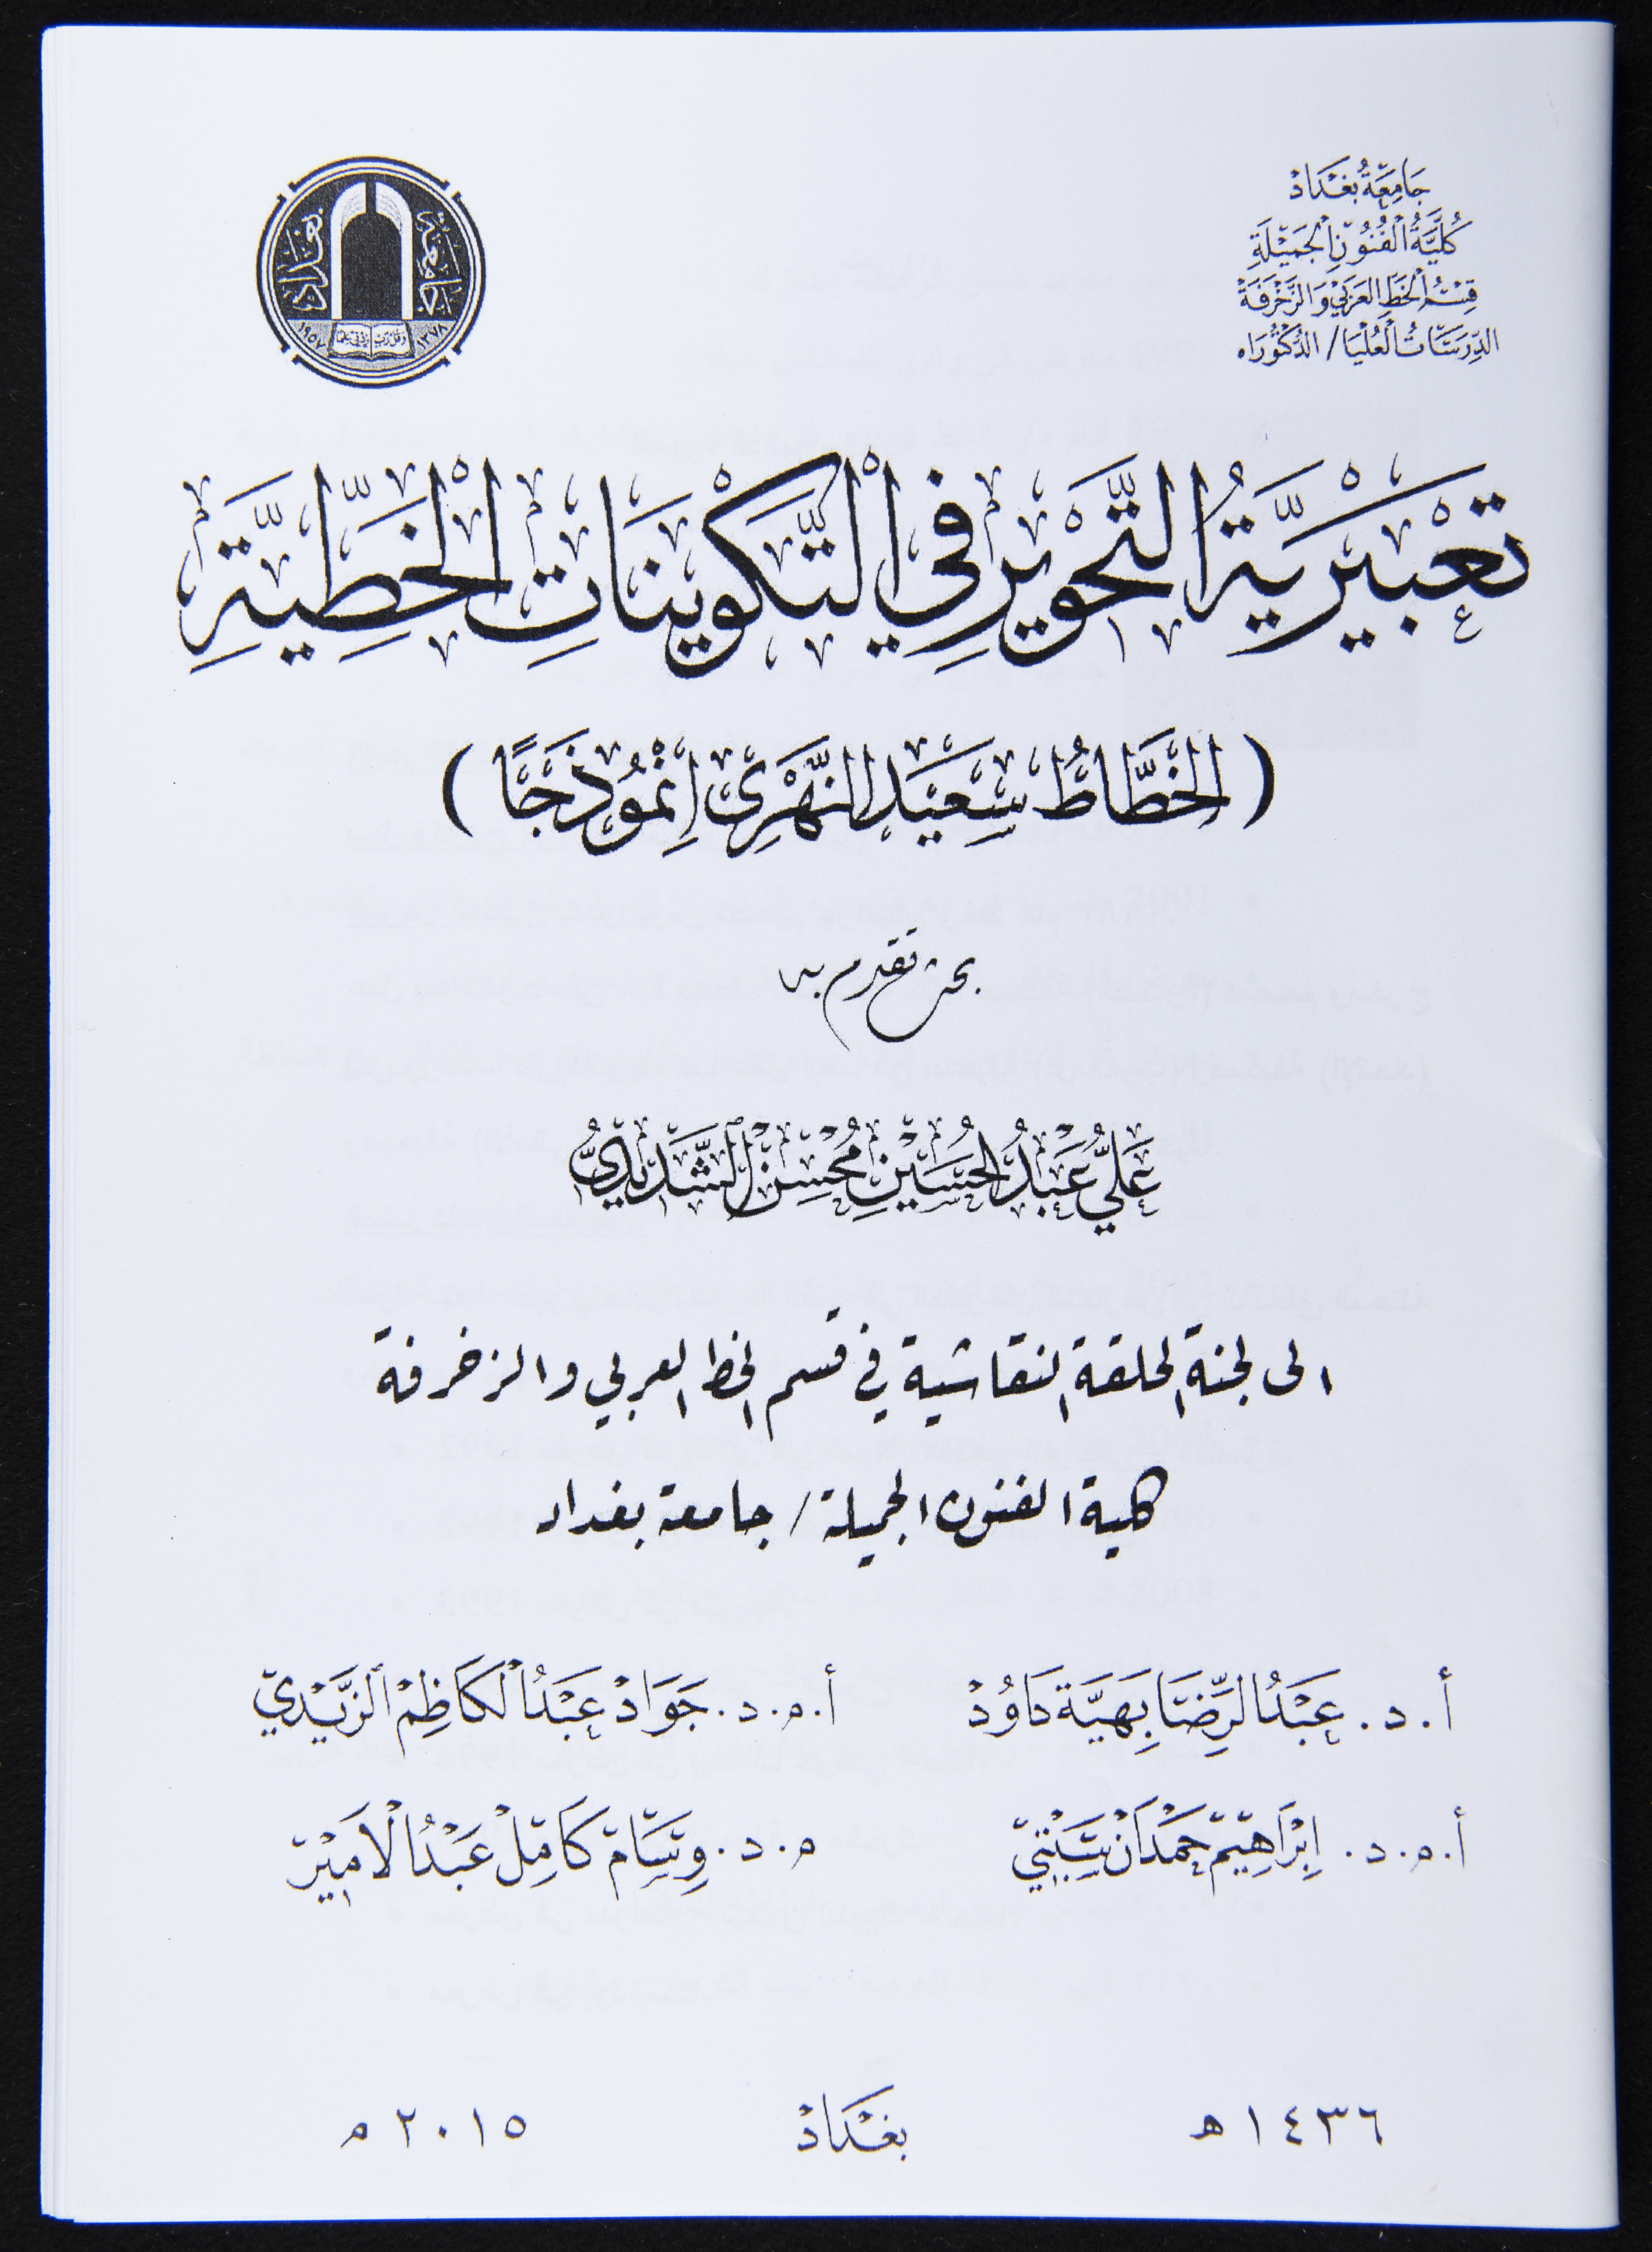 جَامِعَةُ بَغْدَادْ
كُلِّيَّةُ الْفُنُوْنِ الْجَمِيْلَةِ
قِسْمُ الْخَطِّ الْعَرَبِيِّ وَالزَّخْرَفَةْ
الدِّرَاسَاتُ الْعُلْيَا / الدُّكْتُوْرَاه
جامعة بغداد
وقل رب زدني علما
١٣٧٨ ١٩٥٧
تَعْبِيْرِيَّةُ التَّحْوِيْرِ فِي الْتَّكْوِينَاتِ الْخَطِّيَّةِ
( الْخَطَّاطُ سَعِيَد النَّهْرِي إِنْمُوْذَجًا )
بحث تقدم به
عَلِيُّ عَبْدُ الْحُسَيْنِ مُحْسِنْ الشَّدِيْدِيُّ
الى لجنة الحلقة النقاشية في قسم الخط العربي والزخرفة
كلية الفنون الجميلة / جامعة بغداد
أ . د . عَبْدُ الرِّضَا بَهِيَّة دَاوُدْ
أ . م . د . جَوَادْ عَبْدُ الْكَاظِمْ الزَّيْدِيّ
أ . م . د . إِبْرَاهِيْمْ حَمْدَانْ سَبْتِيّ
م . د . وِسَامْ كَامِلْ عَبْدُ الْأَمِيْرْ
١٤٣٦ هـ بَغْدَادْ ٢٠١٥ م